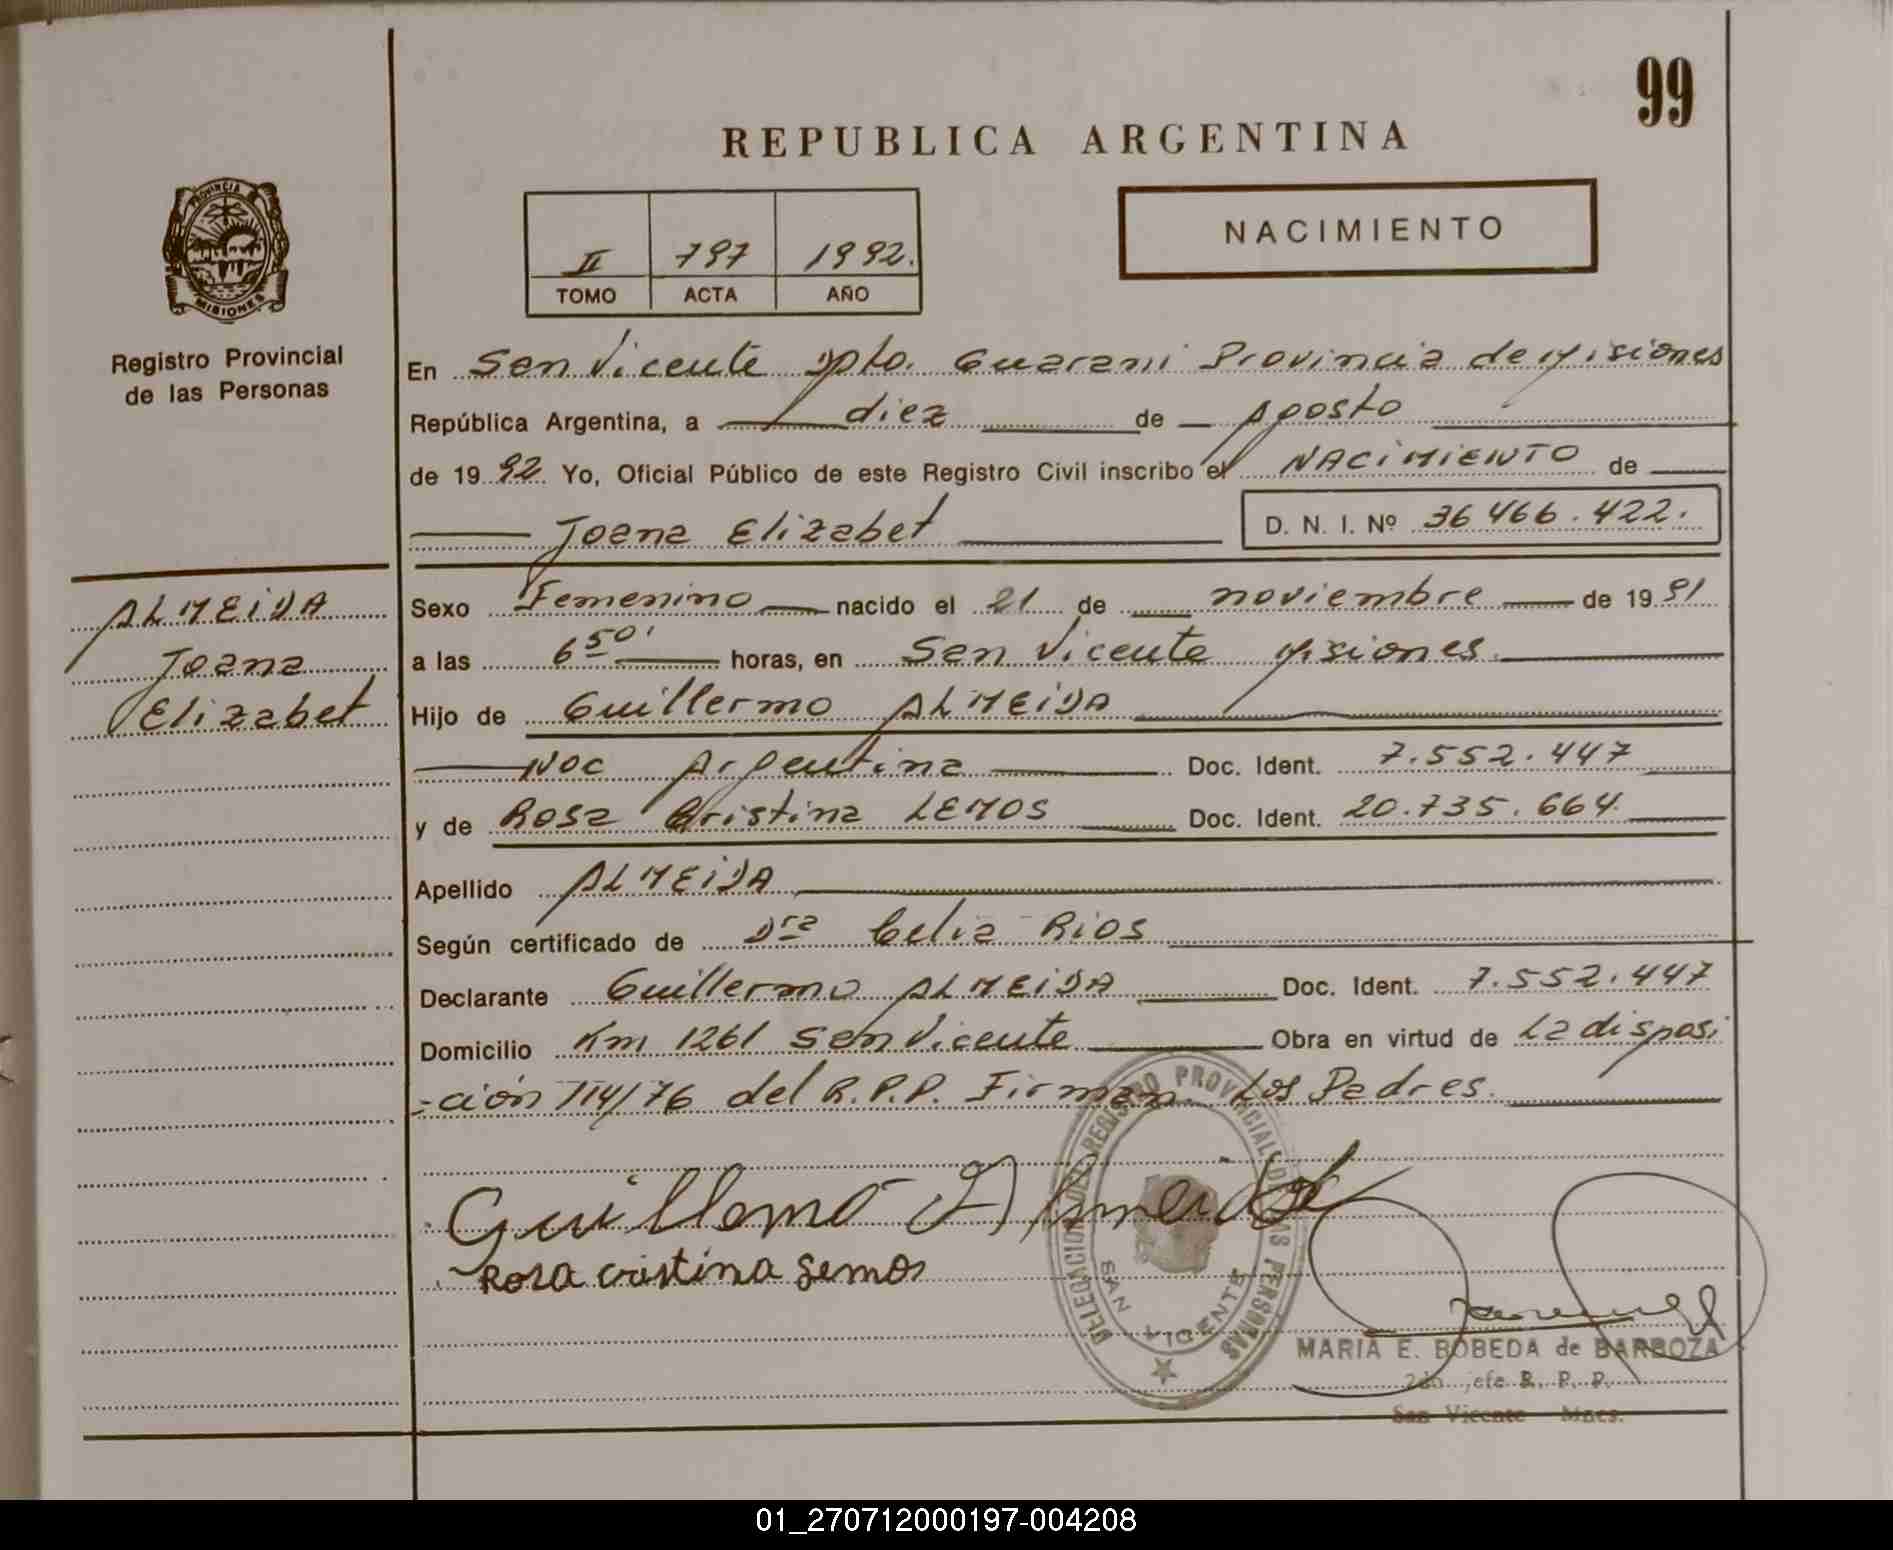 99
REPUBLICA ARGENTINA
PROVINCIA
MISIONES
Registro Provincial
de las Personas
II 797 1992.
TOMO ACTA AÑO
NACIMIENTO
En San Vicente Dpto. Guarani Provincia de Misiones
República Argentina, a diez de Agosto
de 19 92 Yo, Oficial Público de este Registro Civil inscribo el NACIMIENTO de
Joana Elizabet D. N. I. Nº 36 466.422.
ALMEIDA
Joana
Elizabet
Sexo Femenino nacido el 21 de noviembre de 19 91
a las 6 50' horas, en San Vicente Misiones.
Hijo de Guillermo ALMEIDA
Nac Argentina Doc. Ident. 7.552.447
y de Rosa Cristina LEMOS Doc. Ident. 20.735.664.
Apellido ALMEIDA
Según certificado de Dra Celia Rios
Declarante Guillermo ALMEIDA Doc. Ident. 7.552.447
Domicilio Km 1261 San Vicente Obra en virtud de La disposi
-ción 114/76 del R.P.P. Firman Los Padres.
Guillermo Almeida
Rosa cristina Lemos
DELEGACION DEL REGISTRO PROVINCIAL DE LAS PERSONAS
SAN VICENTE
MARIA E. BOBEDA de BARBOZA
2do jefe R. P. P.
San Vicente Mnes.
01_270712000197-004208